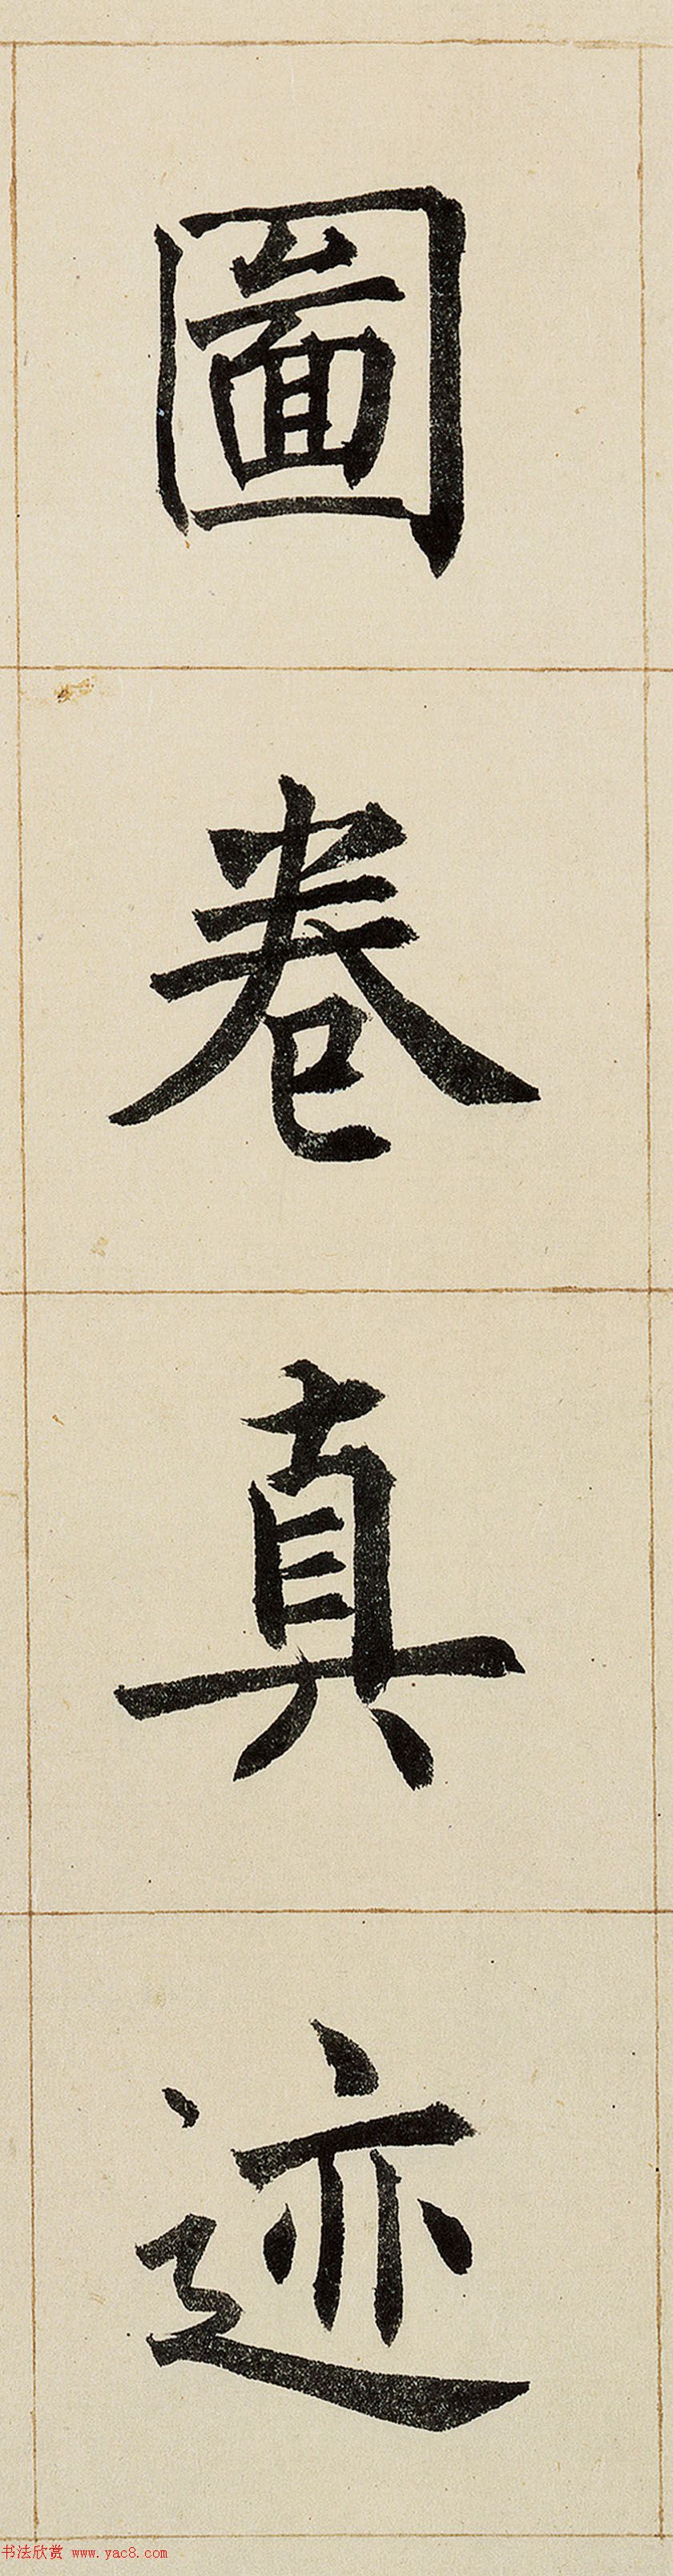 圖卷真迹
书法欣赏 www.yac8.com